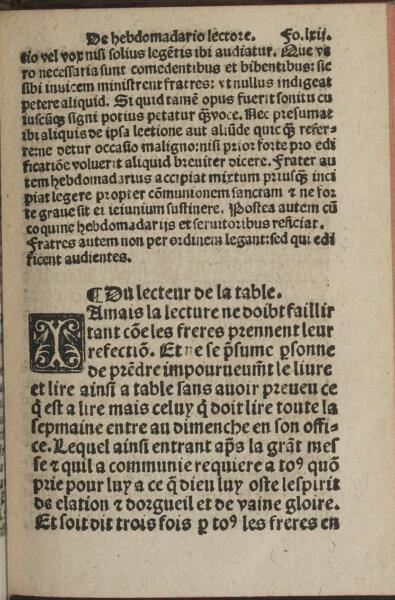 De hebdomadario lectore. Fo.lxij.
tio vel vox nisi solius legētis ibi audiatur. Que ve
ro necessaria sunt comedentibus et bibentibus: sic
sibi inuicem ministrent fratres: vt nullus indigeat
petere aliquid. Si quid tamē opus fuerit sonitu cu
iuscūqꝫ signi potius petatur q̄ꝫ voce. Nec presumat
ibi aliquis de ipsa lectione aut aliūde quicq̄ꝫ refer-
re: ne detur occasio maligno: nisi prior forte pro edi
ficatiōe voluerit aliquid breuiter dicere. Frater au
tem hebdomadarius accipiat mixtum priusq̄ꝫ inci
piat legere propter cōmunionem sanctam ⁊ ne for
te graue sit ei ieiunium sustinere. Postea autem cū
coquine hebdomadarijs et seruitoribus reficiat.
Fratres autem non per ordinem legant: sed qui edi
ficent audientes.
¶ Du lecteur de la table.
IAmais la lecture ne doibt faillir
tant cōe les freres prennent leur
refectiō. Et ne se p̄sume ꝑsonne
de prēdre impourueumt̄ le liure
et lire ainsi a table sans auoir preueu ce
q̄ est a lire mais celuy q̄ doit lire toute la
sepmaine entre au dimenche en son offi-
ce. Lequel ainsi entrant ap̄s la grāt mes
se ⁊ quil a communie requiere a toꝰ quō
prie pour luy a ce q̄ dieu luy oste lespirit
de elation ⁊ dorgueil et de vaine gloire.
Et soit dit trois fois ꝑ toꝰ les freres en